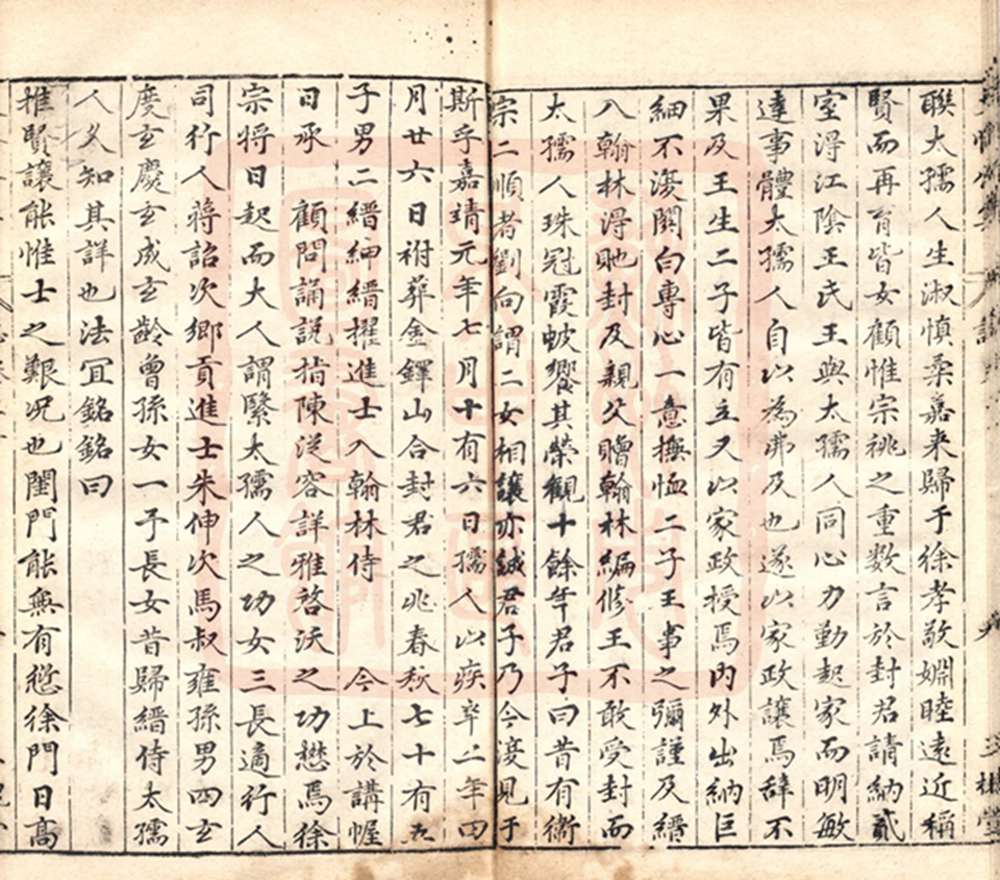 聯大孺人生淑慎柔嘉来歸于徐孝敬婣睦遠近稱
賢而再育皆女顧惟宗祧之重数言於封君請納貳
室淂江陰王氏王與太孺人同心力勤起家而明敏
達事體太孺人自以為弗及也遂以家政讓焉辞不
果及王生二子皆有立又以家政授焉内外出納巨
細不溲関白專心一意撫恤二子王事之彌謹及縉
入翰林淂貤封及親父贈翰林編修王不敢受封而
太孺人珠冠霞帔饗其榮観十餘年君子曰昔有衛
宗二順者劉向謂二女相讓亦誠君子乃今溲見于
斯乎嘉靖元年七月十有六日孺人以疾卒二年四
月廿六日祔葬金鐸山合封君之兆春秋七十有五
子男二縉紳縉擢進士入翰林侍 今上於講幄
日承 顧問誦説指陳從容詳雅啓沃之功懋焉徐
宗将日起而大人謂緊太孺人之功女三長適行人
司行人蒋詔次鄉貢進士朱伸次馬叔雍孫男四玄
度玄慶玄成玄齡曾孫女一予長女昔歸縉侍太孺
人久知其詳也法冝銘銘曰
推賢讓能惟士之艱况也閨門能無有愆徐門日高